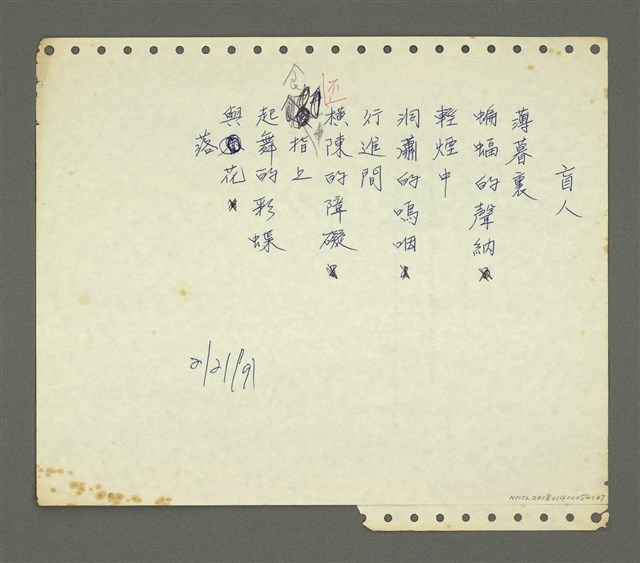 盲人
薄暮裏
蝙蝠的聲納
輕煙中
洞蕭的嗚咽
行進間
橫陳的障礙
食指上
起舞的彩蝶
與花
落
2/21/91
NMTL20180140005-007